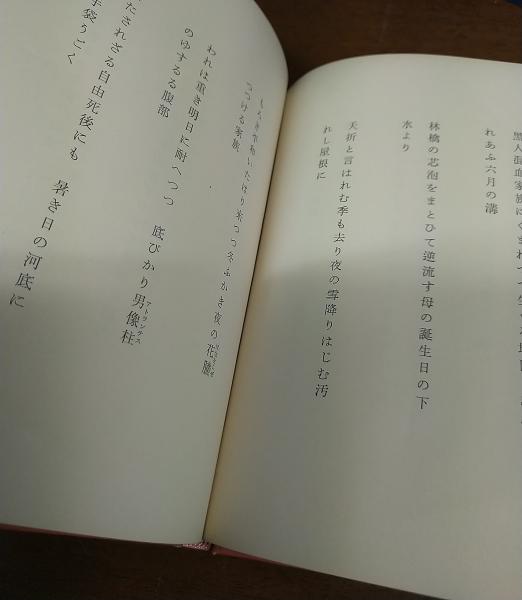 黒人混血家族
れあふ六月の溝
林檎の芯泡をまとひて逆流す母の誕生日の下
水より
夭折と言はれむ季も去り夜の雪降りはじむ汚
れし屋根に
もろき平和いたはり来つつ冬ふかき夜の花
つつける家族
われは重き明日に耐へつつ　底びかり男像柱
のゆするる腹部
たされざる自由死後にも　暑き日の河底に
手袋うごく